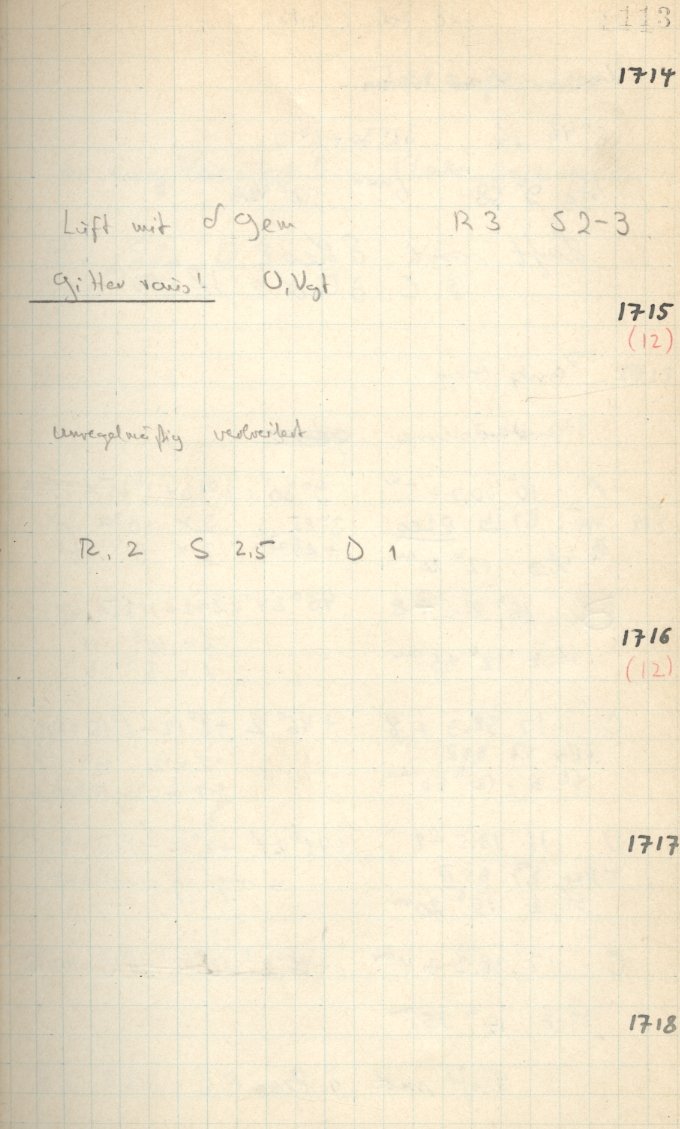 113
1714
Luft mit δ gem R 3 S 2-3
Gitter raus! O, Vgt
1715
(12)
unregelmäßig verbreitert
R. 2 S 2,5 D 1
1716
(12)
1717
1718